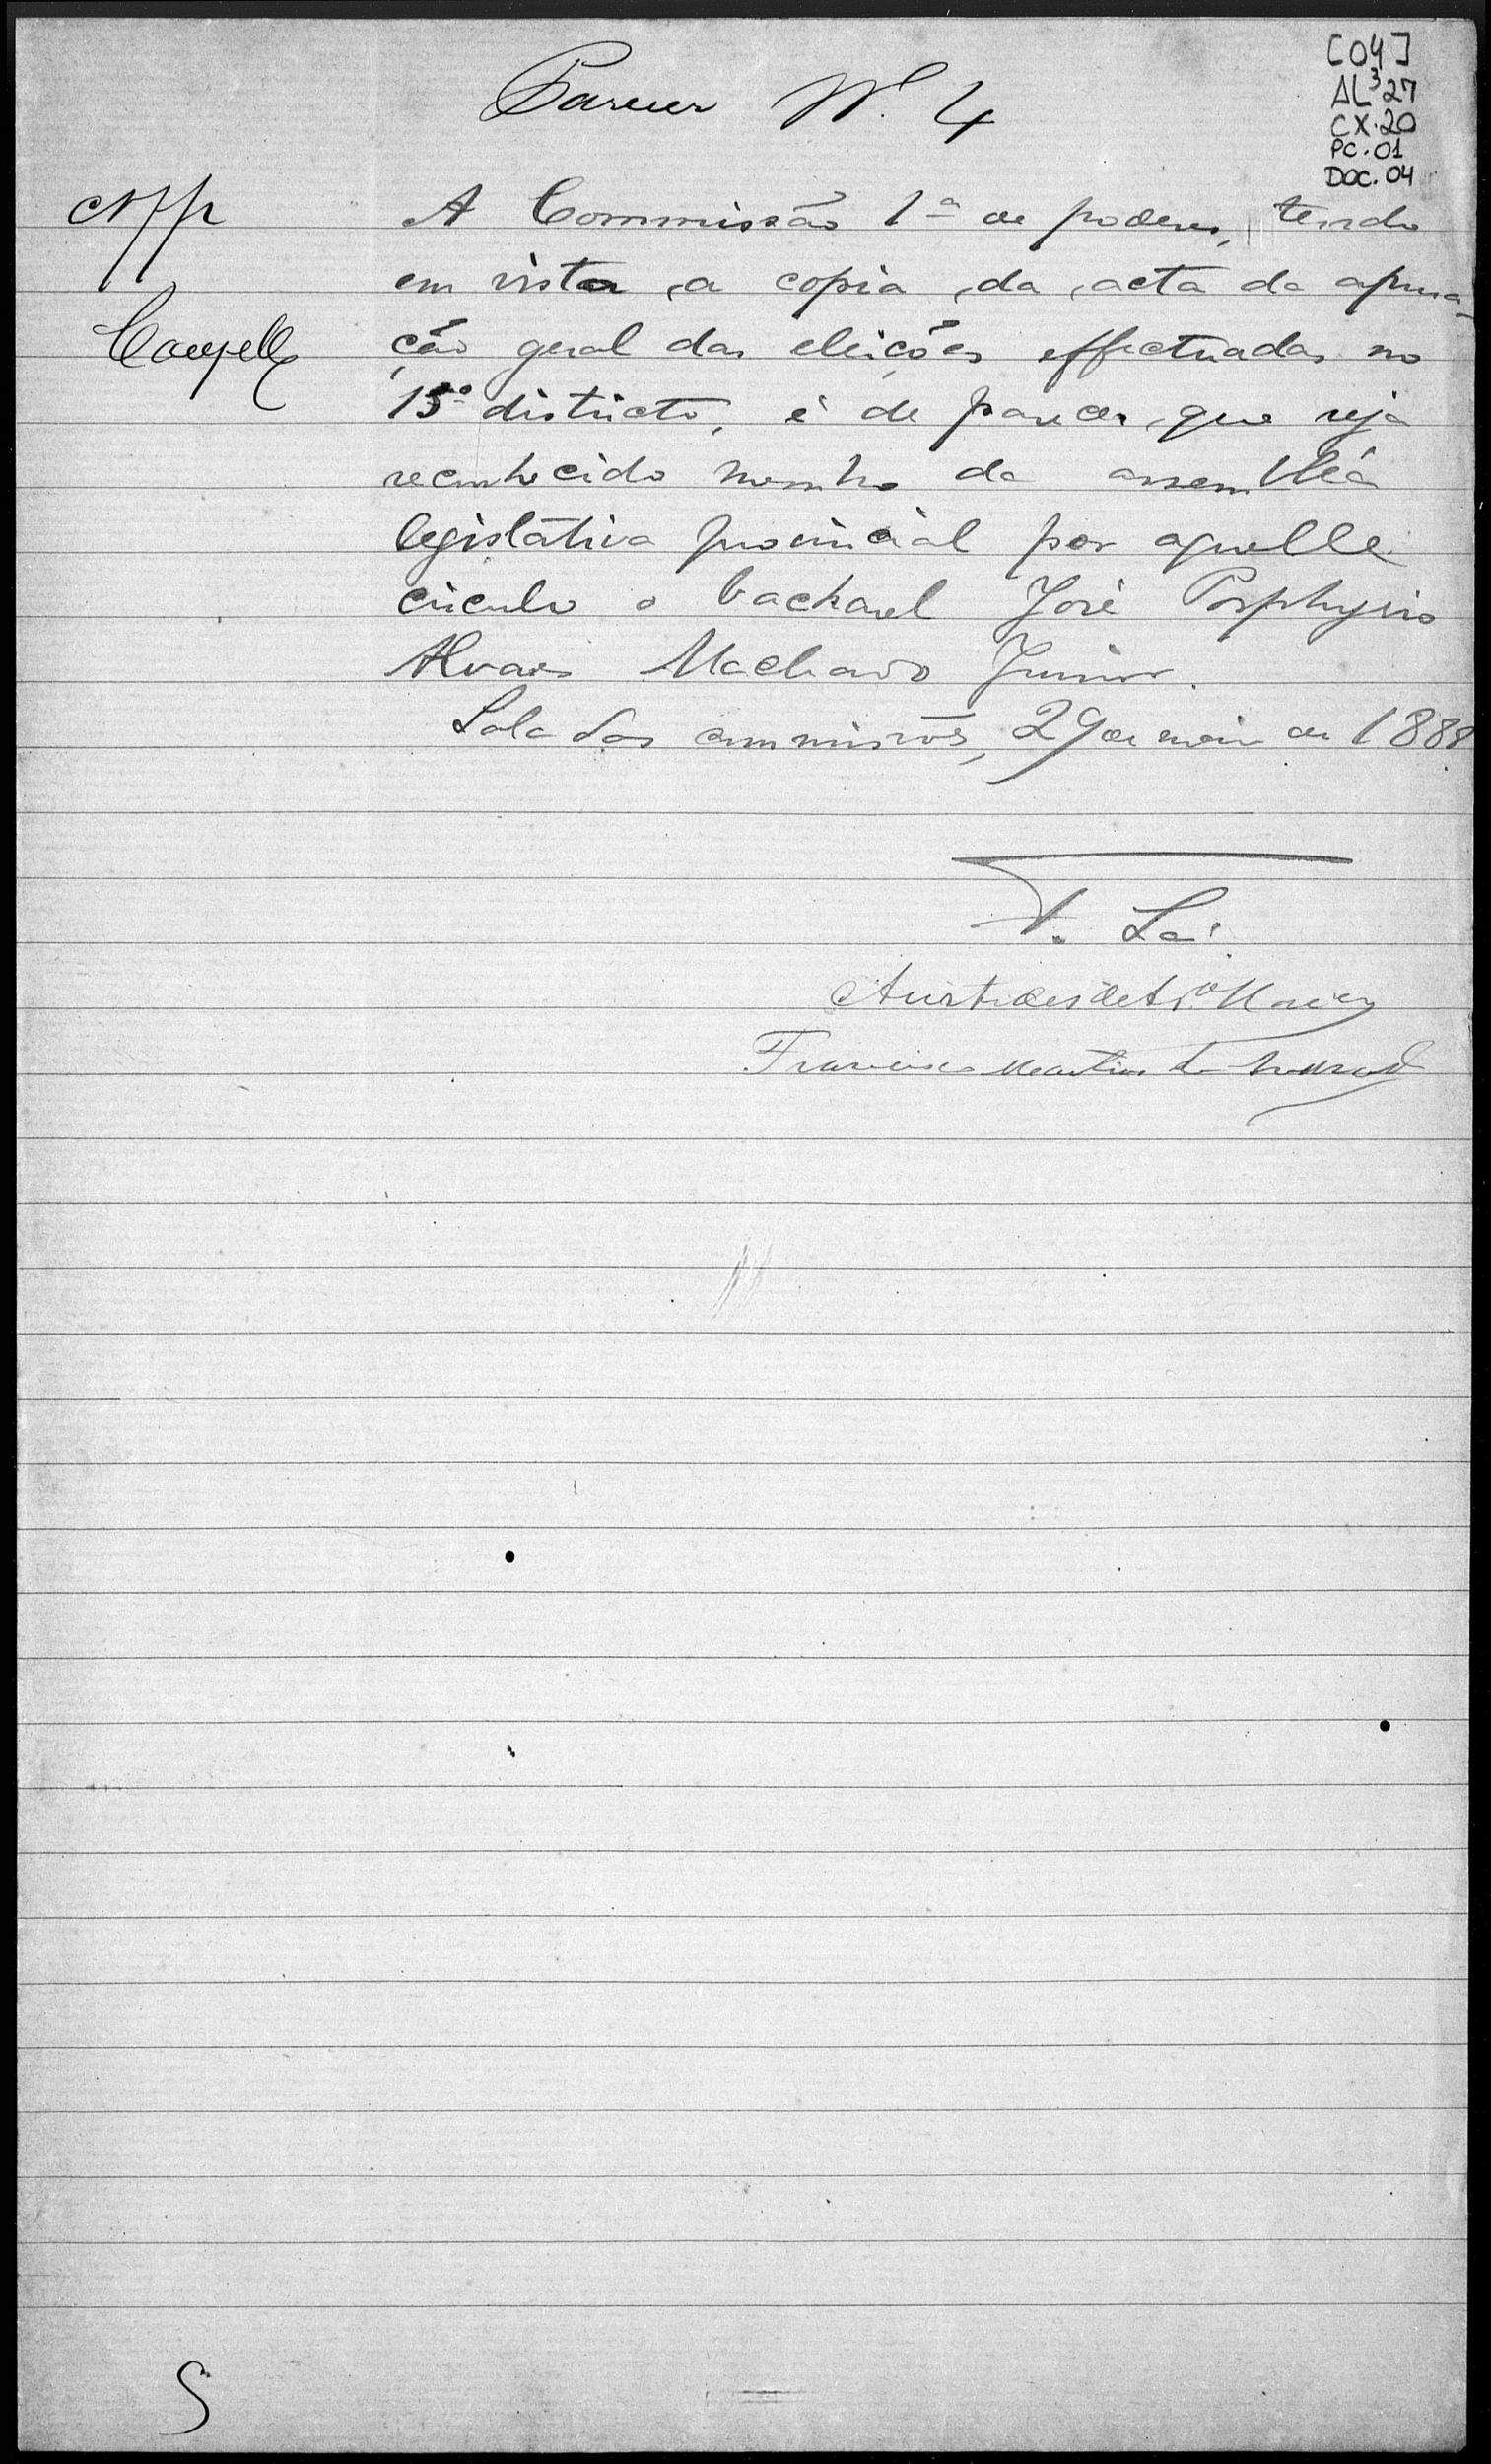 [04]
AL³27
CX.20
PC.01
DOC.04
Parecer Nº 4
App
A Commissão 1ª de poderes, tendo
em vista a copia da acta da apura-
ção geral das eleições effectuadas no
15º districto, é de parecer que seja
reconhecido membro da assembléa
legislativa provincial por aquelle
circulo o bacharel José Porphyrio
Alvares Machado Junior.
Sala das commissões, 29 de maio de 1888
F. Sá
Aristides de A. Maia
Francisco Martins de Andrade
S